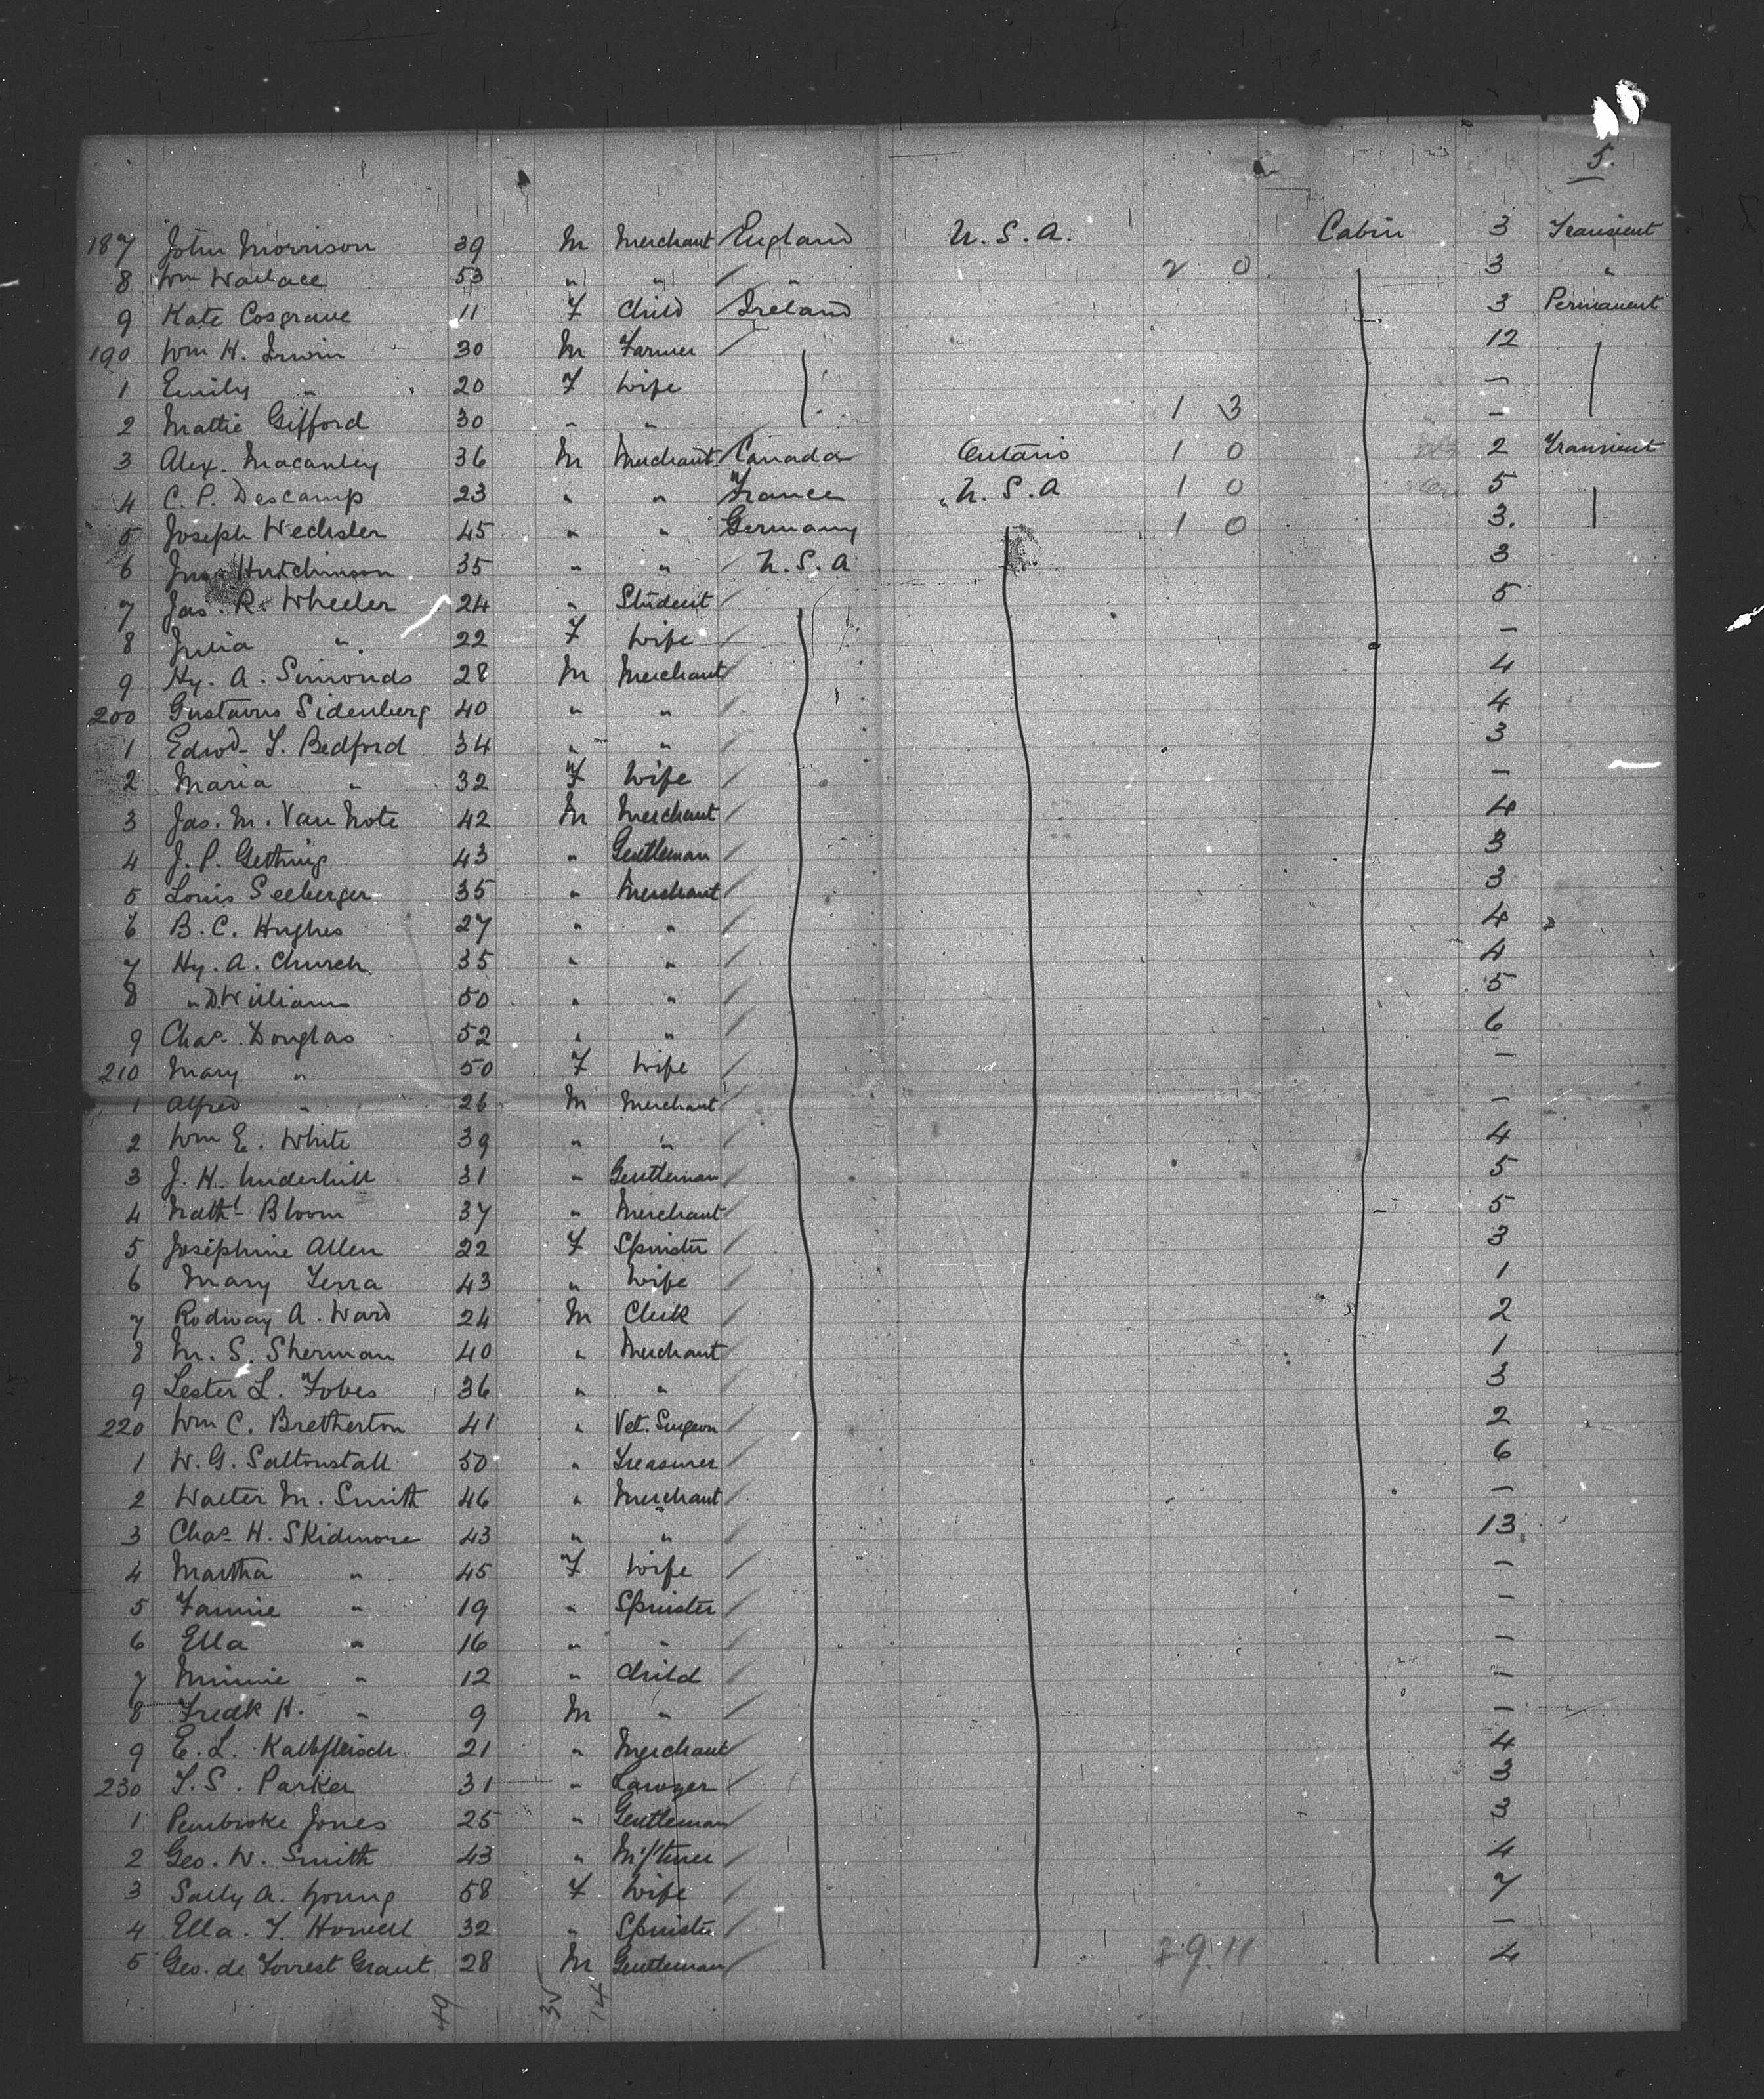 5.
187 John Morrison 39 M Merchant England U.S.A. Cabin 3 Transient
8 Wm Wallace 53 " " " 2 0 3 "
9 Kate Cosgrave 11 F Child Ireland 3 Permanent
190 Wm H. Irwin 30 M Farmer 12
1 Emily " 20 F Wife —
2 Mattie Gifford 30 " " 1 3 —
3 Alex. Macauley 36 M Merchant Canada Ontario 1 0 2 Transient
4 C. P. Descamp 23 " " France U.S.A 1 0 5
5 Joseph Wechsler 45 " " Germany 1 0 3.
6 Jno Hutchinson 35 " " U.S.A 3
7 Jas. R. Wheeler 24 " Student 5
8 Julia " 22 F Wife —
9 Hy. A. Simonds 28 M Merchant 4
200 Gustavus Sidenberg 40 " " 4
1 Edwd T. Bedford 34 " " 3
2 Maria " 32 F Wife —
3 Jas. M. Van Note 42 M Merchant 4
4 J. P. Gething 43 " Gentleman 3
5 Louis Seeberger 35 " Merchant 3
6 B. C. Hughes 27 " " 4
7 Hy. A. Church 35 " " 4
8 " D. Williams 50 " " 5
9 Chas. Douglas 52 " " 6
210 Mary " 50 F Wife —
1 Alfred " 26 M Merchant —
2 Wm E. White 39 " " 4
3 J. H. Underhill 31 " Gentleman 5
4 Nathl Bloom 37 " Merchant 5
5 Josephine Allen 22 F Spinster 3
6 Mary Terra 43 " Wife 1
7 Rodway A. Ward 24 M Clerk 2
8 M. S. Sherman 40 " Merchant 1
9 Lester L. Fobes 36 " " 3
220 Wm C. Bretherton 41 " Vet. Surgeon 2
1 W. G. Saltonstall 50 " Treasurer 6
2 Walter M. Smith 46 " Merchant —
3 Chas H. Skidmore 43 " " 13
4 Martha " 45 F Wife —
5 Fannie " 19 " Spinster —
6 Ella " 16 " " —
7 Minnie " 12 " Child —
8 Fredk H. " 9 M " —
9 E. L. Kalbfleisch 21 " Merchant 4
230 T. S. Parker 31 " Lawyer 3
1 Pembroke Jones 25 " Gentleman 3
2 Geo. W. Smith 43 " M'f'turer 4
3 Sally A. Young 58 F Wife 7
4 Ella. T. Howell 32 " Spinster —
5 Geo. de Forrest Grant 28 M Gentleman 4
49 35 14